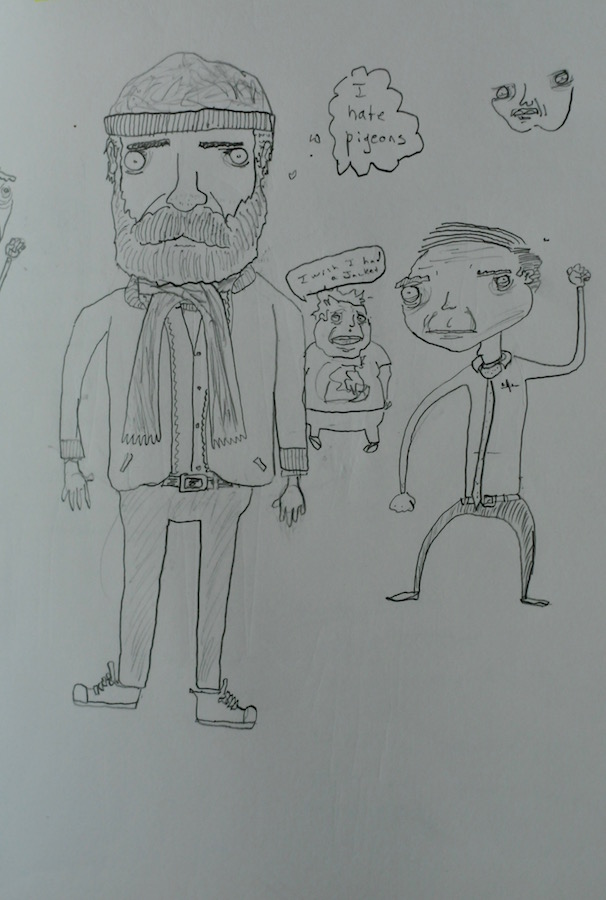 I
hate
pigeons
I wish I had
a Jacket